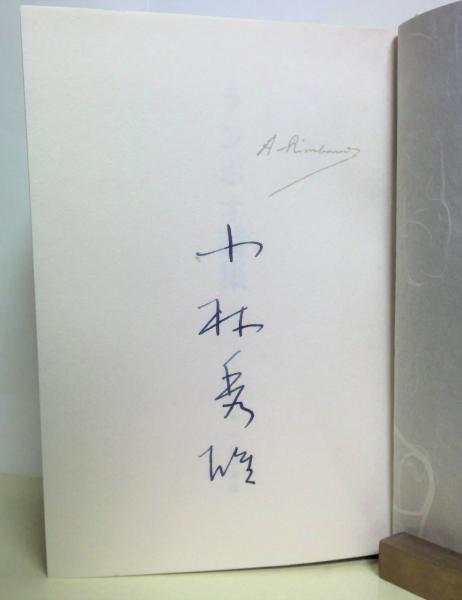 A. Rimbaud
小林秀雄